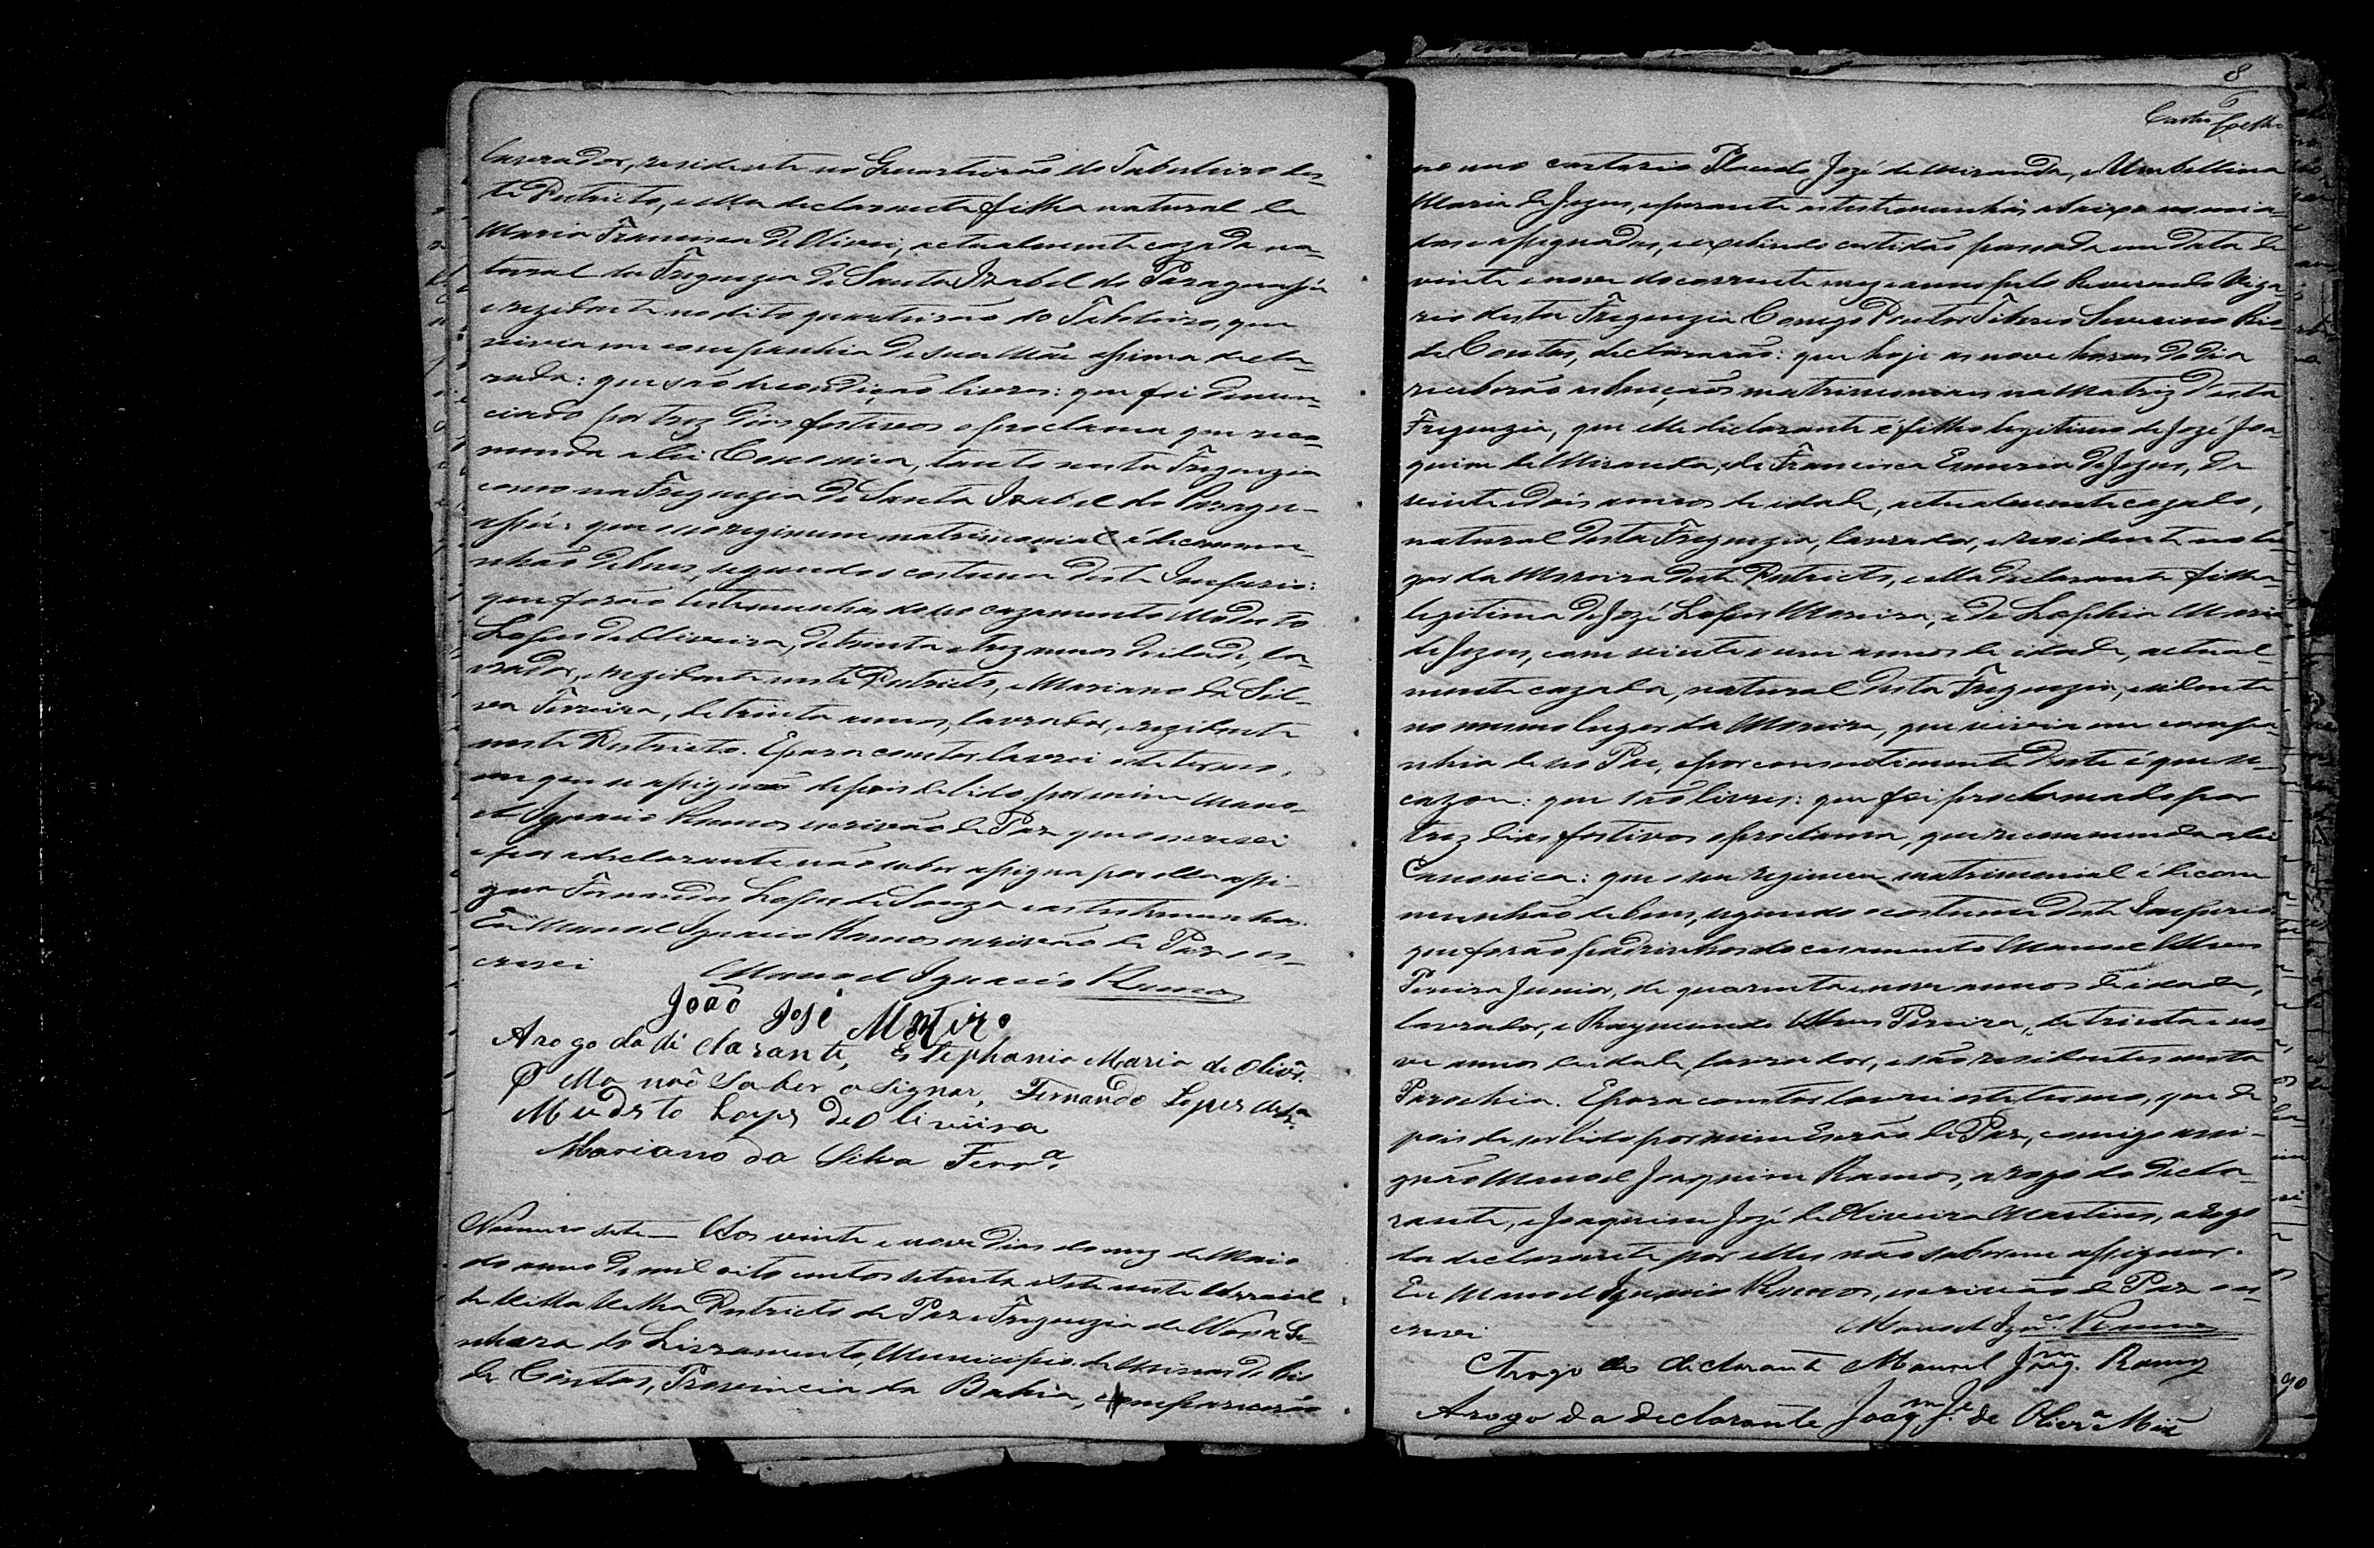 lavrador, residente no Quarteirão do Taboleiro des-
te Destricto, e ella declarante filha natural de
Maria Francisca de Oliveira, actualmente cazada na-
tural da Freguezia de Santa Izabel do Paraguassú
e rezidente no dito quarteirão do Taboleiro, que
vivia em companhia de sua Mãe assima decla-
rada: que são de condição livres: que foi denun-
ciado por trez dias festivos o proclama que reco-
menda a lei Canonica, tanto nesta Freguezia
como na Freguezia de Santa Izabel do Paragu-
assú: que o seo regimem matrimonial é de commu-
nhão de bens, segundo o costume deste Imperio:
que forão testemunhas do seo cazamento Modesto
Lopes de Oliveira, de trinta e trez annos de idade, la-
vrador, e rezidente neste Destricto, e Mariano da Sil-
va Ferreira, de trinta annos, lavrador, e rezidente
neste Destricto. E para constar lavrei este termo,
em que se assignão depois de lido por mim Mano-
el Ignacio Ramos escrivão de Paz que o escrevi
e por a declarante não saber assignar por ella assi-
gna Fernando Lopes de Souza e as testemunhas.
Eu Manoel Ignacio Ramos escrivão de Paz o es-
crevi Manoel Ignacio Ramos
João José
Arogo da declarante, Estephania Maria de Olivrª.
P ella não saber asignar, Fernando Lopes de Sza
Mudesto Lopes de Oliveira
Mariano da Silva Ferrª.
Numero sete— Aos vinte e nove dias do mez de Maio
do anno de mil oito centos setenta e sete neste Arraial
de Villa Velha Destricto de Paz e Freguezia de Nossa Se-
nhora do Livramento, Municipio de Minas do Rio
de Contas, Provincia da Bahia, comparecerão
8
no meo cartorio Placido Jozé de Miranda, e Umbellina
Maria de Jezus, e perante as testemunhas abaixo nomia-
das e assignadas, e exebindo certidão passada em data de
vinte e nove do corrente mez e anno pelo Reverendo Viga-
rio desta Freguezia Conego Doutor Tiberio Severino Rio
de Contas, declararão: que hoje as nove horas do dia
receberão as bençãos matrimoniaes na Matriz d'esta
Freguezia, que elle declarante é filho legitimo de Jozé Joa-
quim de Miranda, e de Francisca Esmeria de Jezus, de
vinte e dois annos de idade, actualmente cazado,
natural desta Freguezia, lavrador, e residente no lu-
gar da Moreira deste Destricto, e ella declarante filha
legitima de Jozé Lopes Moreira, e de Sophia Maria
de Jezus, com vinte e um annos de idade, actual-
mente cazada, natural desta Freguezia, residente
no mesmo lugar da Moreira, que vivia em compa-
nhia de seo Pae, e por consentimento deste é que se
cazou: que são livres: que foi proclamado por
trez dias festivos o proclama, que recommenda a lei
Canonica: que o seu regimen matrimonial é de com
munhão de bens, segundo o costume deste Imperio:
que forão padrinhos do casamento Manoel Alves
Pereira Junior, de quarenta e nove annos de idade,
lavrador, e Raymundo Alves Pereira, de trinta e no-
ve annos de idade, lavrador, e são residentes nesta
Parochia. E para constar lavrei este termo, que de
pois de ser lido por mim Escrão de Paz, comigo assi-
gnão Manoel Joaquim Ramos, a rogo do decla-
rante, e Joaquim Jozé de Oliveira Martins, a rogo
da declarante por elles não saberem assignar.
Eu Manoel Ignacio Ramos, escrivão de Paz o es-
crevi Manoel Ignco. Ramos
Arogo do declarante Manoel Joaqm. Ramos
Arogo da declarante Joaqm Je. de Olivrª